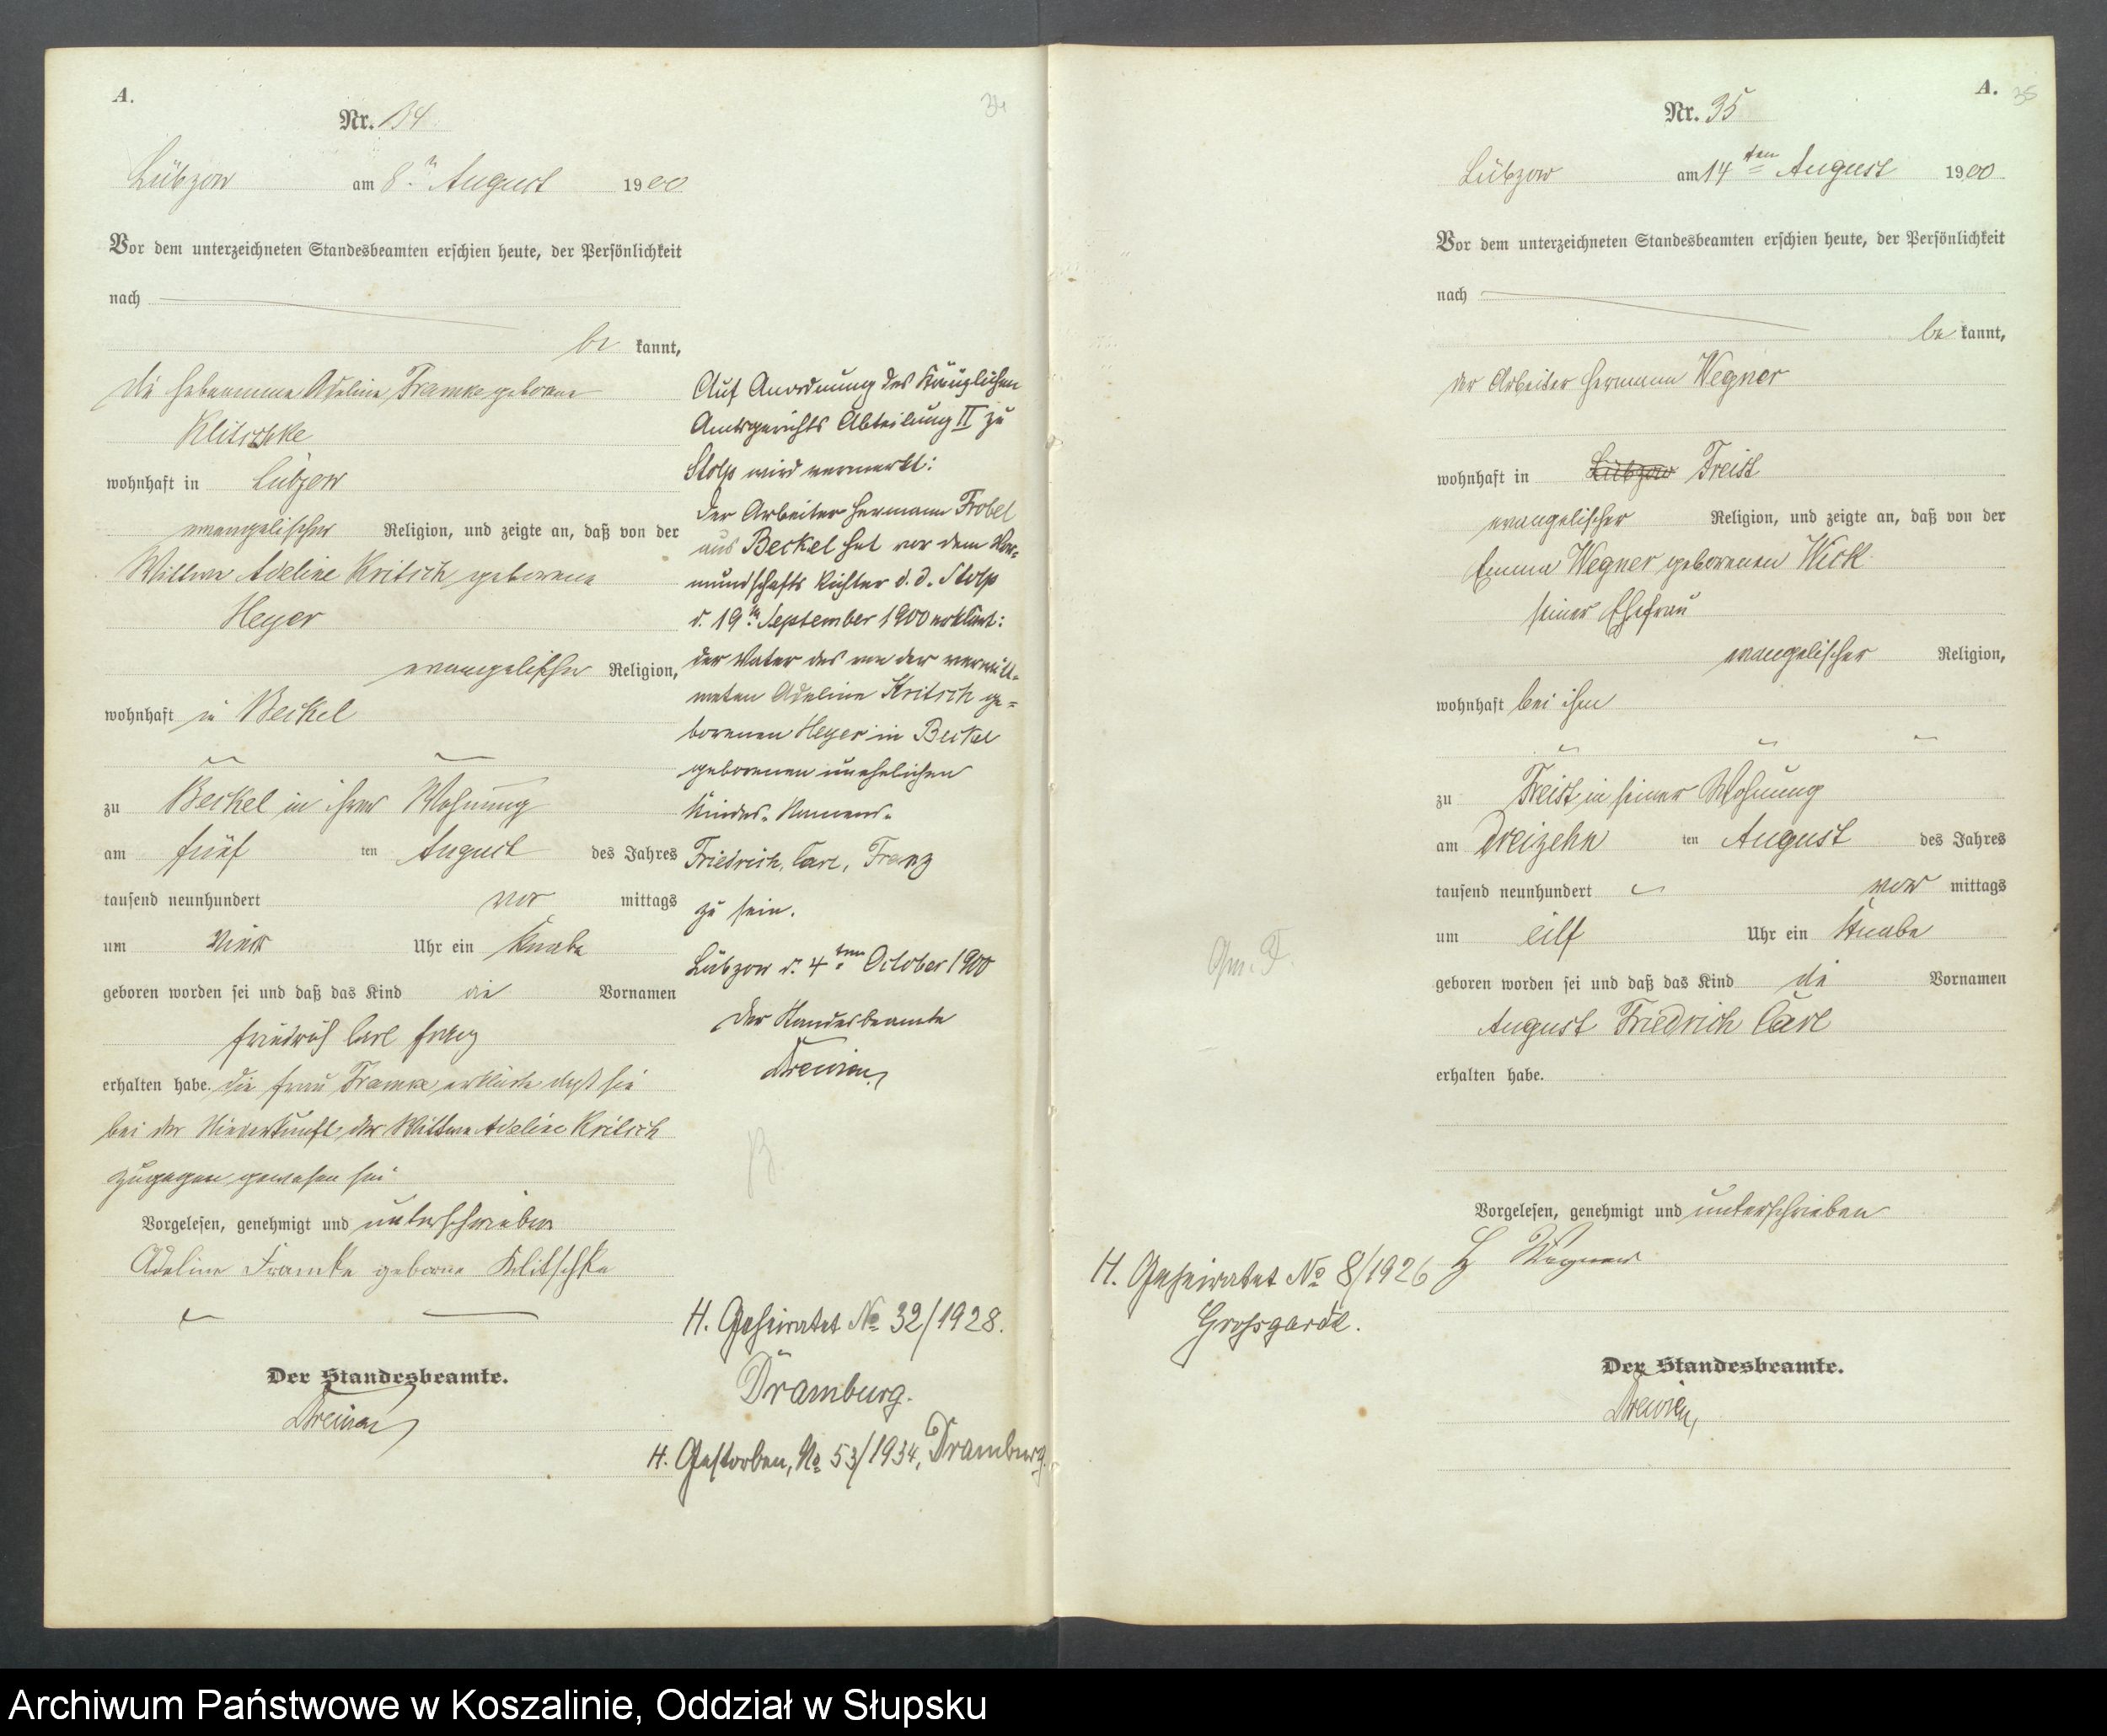 A.
Nr. 34
34
Lübzow am 8.n August 1900
Vor dem unterzeichneten Standesbeamten erschien heute, der Persönlichkeit
nach
be kannt,
die Hebeamme Adeline Framke geborene
Klitschke
wohnhaft in Lübzow
evangelischer Religion, und zeigte an, daß von der
Wittwe Adeline Kritsch geborene
Heyer
evangelischer Religion,
wohnhaft in Beckel
zu Beckel in ihrer Wohnung
am fünf ten August des Jahres
tausend neunhundert vor mittags
um Uhr ein Knabe
geboren worden sei und daß das Kind die Vornamen
Friedrich Carl Franz
erhalten habe. Die Frau Framke erklärte daß sie
bei der Niederkunft der Wittwe Adeline Kritsch
zugegen gewesen sei
Vorgelesen, genehmigt und unterschrieben
Adeline Framke geborne Klitschke
Der Standesbeamte.
Drewien
Auf Anordnung des Königlichen
Amtsgerichts Abteilung II zu
Stolp wird vermerkt:
Der Arbeiter Hermann Frobel
aus Beckel hat vor dem Vor-
mundschafts Richter d. d. Stolp
d. 19ten September 1900 erklärt:
der Vater des von der verwitt-
weten Adeline Kritsch ge=
borenen Heyer in Beckel
geborenen unehelichen
Kindes- Namens-
Friedrich, Carl, Franz
zu sein.
Lübzow d. 4ten October 1900
Der Standesbeamte
Drewien
H. Geheiratet No 32/1928.
Dramburg.
H. Gestorben, No 53/1934, Dramburg.
A.
35
Nr. 35
Lübzow am 14ten August 1900
Vor dem unterzeichneten Standesbeamten erschien heute, der Persönlichkeit
nach
be kannt,
der Arbeiter Hermann Wegner
wohnhaft in Lübzow Freist
evangelischer Religion, und zeigte an, daß von der
Emma Wegner geborenen Wick
seiner Ehefrau
evangelischer Religion,
wohnhaft bei ihm
zu Freist in seiner Wohnung
am Dreizehn ten August des Jahres
tausend neunhundert vor mittags
um eilf Uhr ein Knabe
geboren worden sei und daß das Kind die Vornamen
August Friedrich Carl
erhalten habe.
Vorgelesen, genehmigt und unterschrieben
H Wegner
H. Geheiratet No 8/1926
Großgarde.
Der Standesbeamte.
Drewien,
Archiwum Państwowe w Koszalinie, Oddział w Słupsku